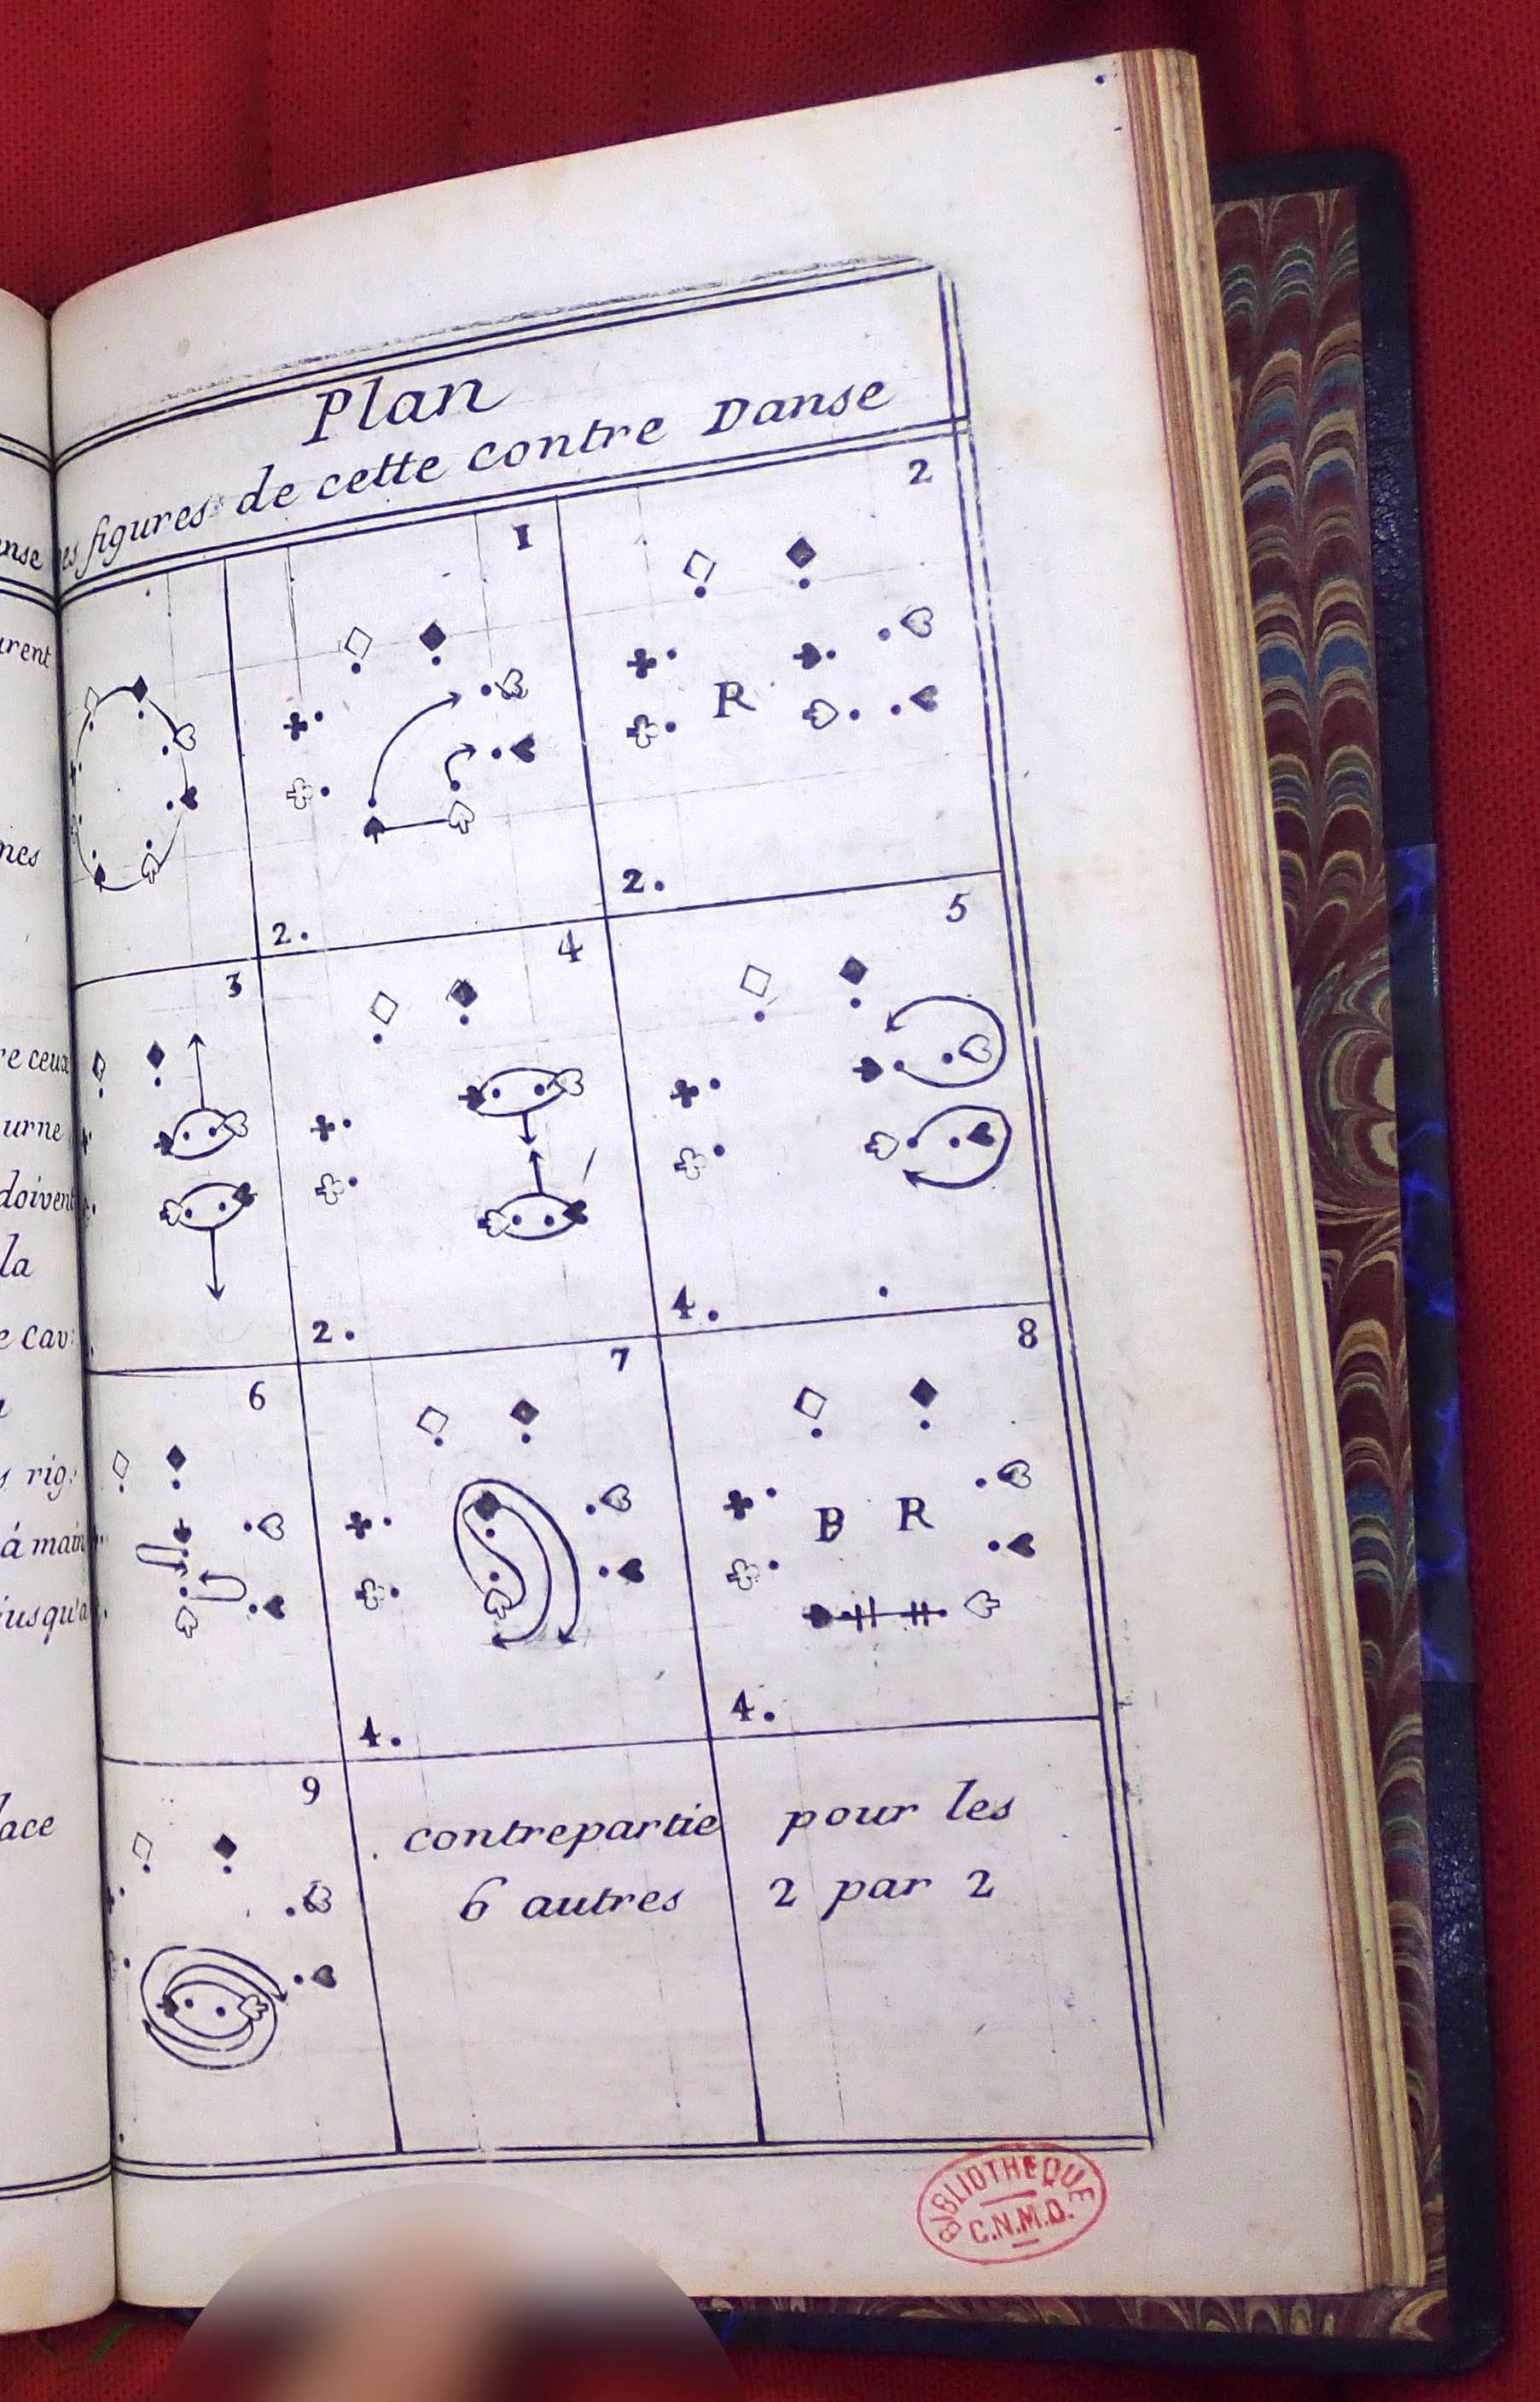 Plan
figures de cette contre Danse
1
2
2.
2.
3
4
5
2.
4.
6
7
8
4.
4.
9
contrepartie pour les
6 autres 2 par 2
R
B R
urent
re ceux
urne
doivent
la
e cav:
rig:
á main
jusqu'a
BIBLIOTHEQUE
C.N.M.D.